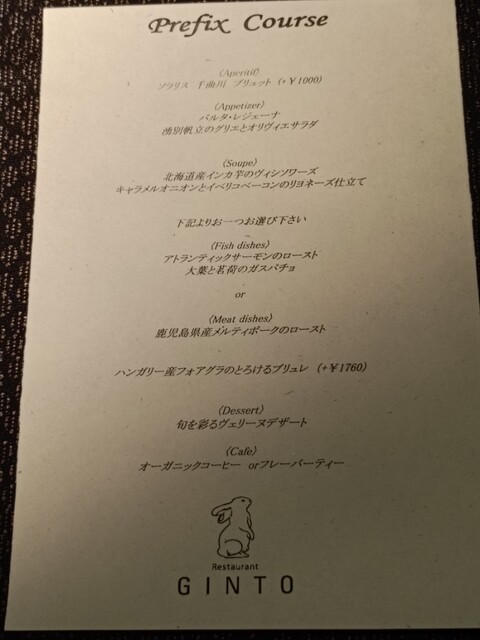 Prefix Course
(Aperitif)
ソラリス 千曲川 ブリュット (+¥1000)
(Appetizer)
バルタ・レジェーナ
湧別帆立のグリエとオリヴィエサラダ
(Soupe)
北海道産インカ芋のヴィシソワーズ
キャラメルオニオンとイベリコベーコンのリヨネーズ仕立て
下記よりお一つお選び下さい
(Fish dishes)
アトランティックサーモンのロースト
大葉と茗荷のガスパチョ
or
(Meat dishes)
鹿児島県産メルティポークのロースト
ハンガリー産フォアグラのとろけるブリュレ (+¥1760)
(Dessert)
旬を彩るヴェリーヌデザート
(Cafe)
オーガニックコーヒー orフレーバーティー
Restaurant
GINTO